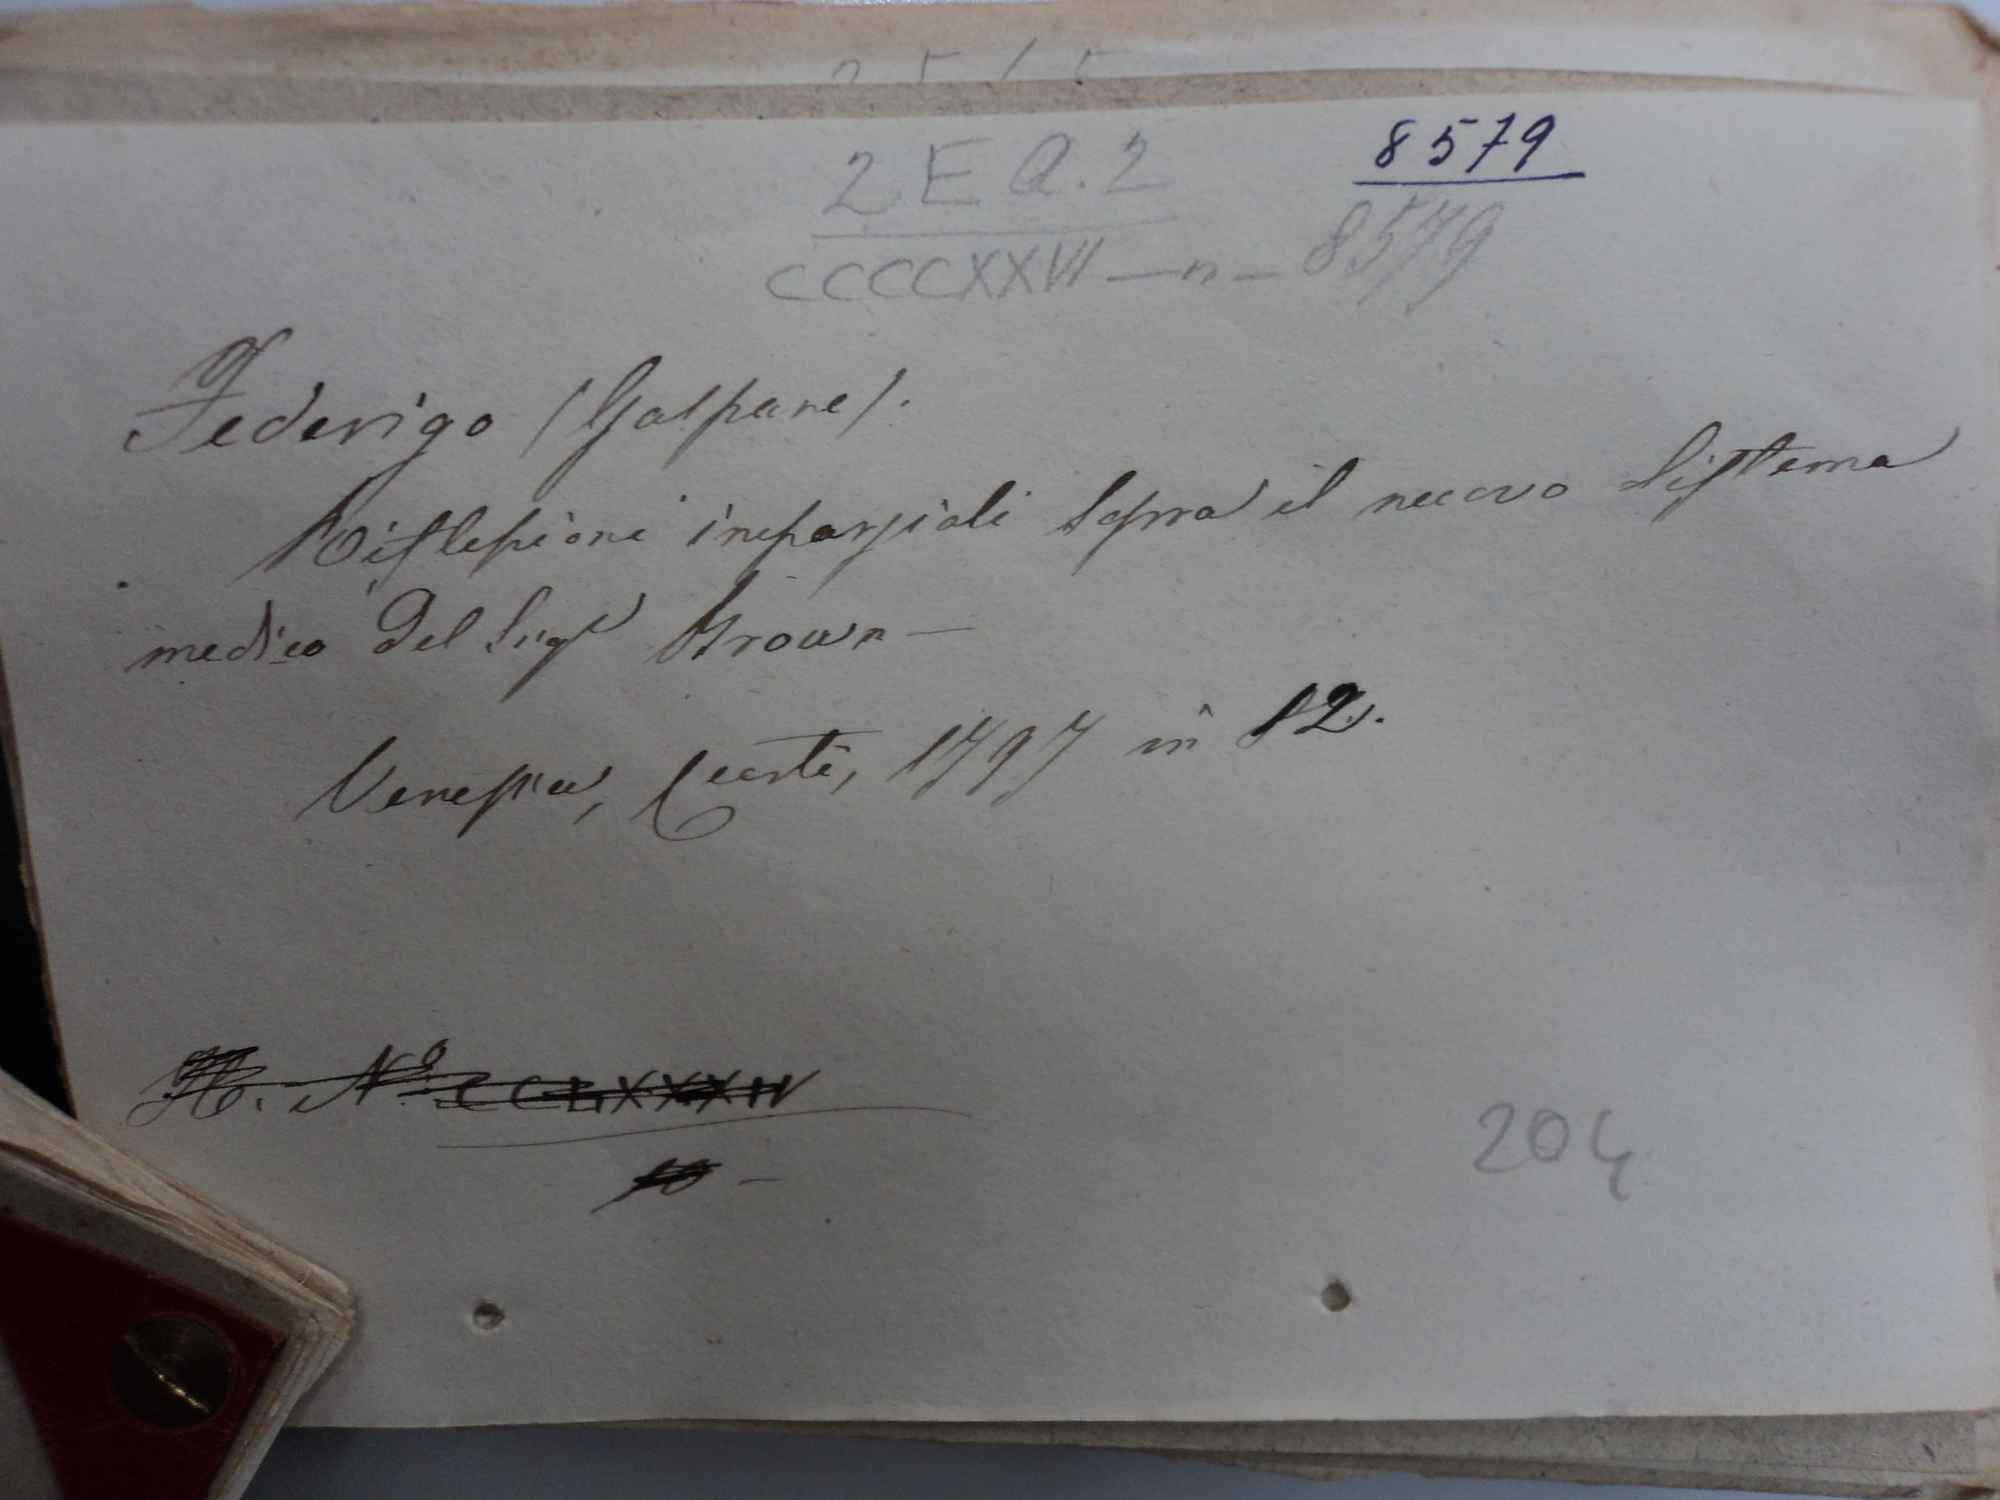 8579
2 E Q. 2
CCCCXXVI — n — 8579
Federigo (Gaspare).
Riflessioni imparziali sopra il nuovo sistema
medico del Sigr Brown —
Venezia, Curti, 1797 in 12.
H. No CCLXXXIV
10 —
204